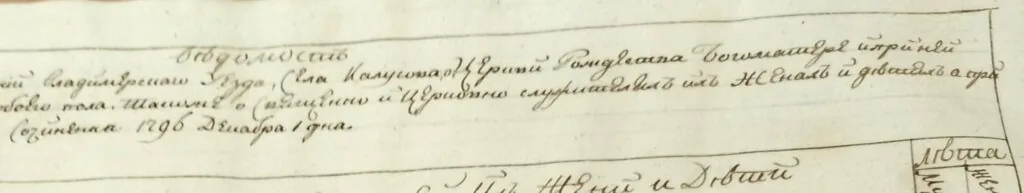 Вѣдомость
Владимерского уезда, Села Калусова, о Церкви Рождества Богоматере и при ней
обоего пола. Такожъ о Священно и Церковно служителяхъ ихъ женахъ и дѣтяхъ а при
Сочинена 1796 Декабря 1 дня.
лѣта
ихъ Жены и Дѣти